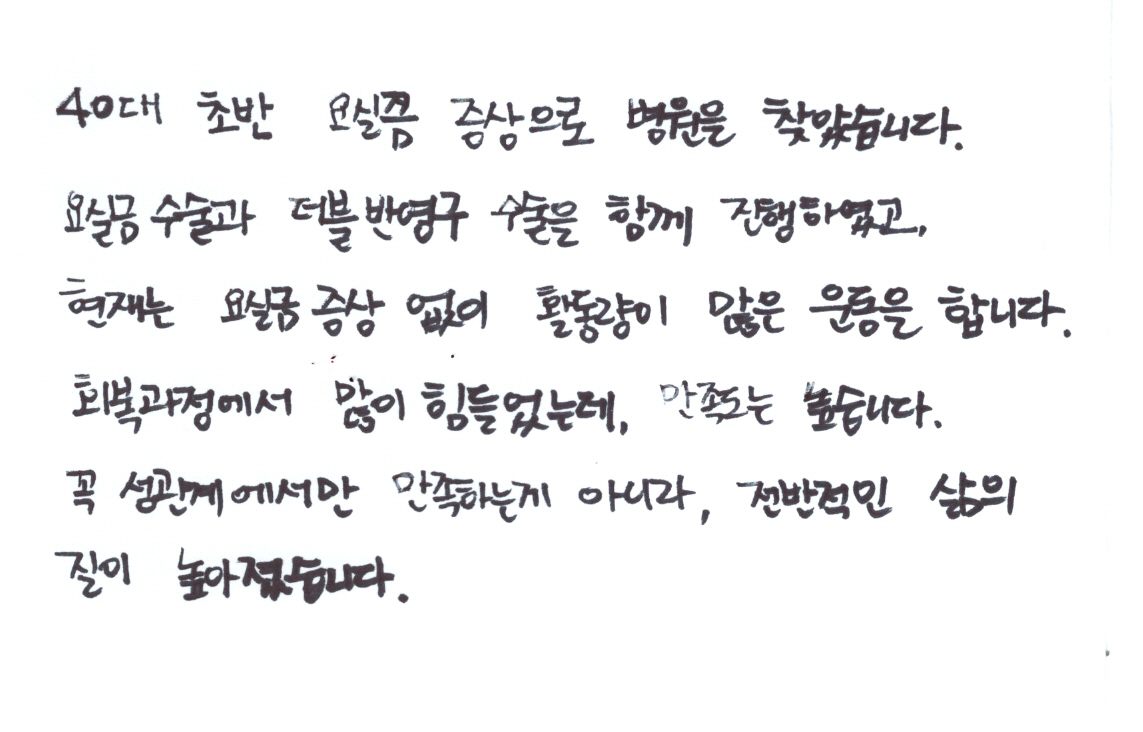 40대 초반 요실금 증상으로 병원을 찾았습니다.
요실금 수술과 더블 반영구 수술을 함께 진행하였고,
현재는 요실금 증상 없이 활동량이 많은 운동을 합니다.
회복과정에서 많이 힘들었는데, 만족도는 높습니다.
꼭 성관계에서만 만족하는게 아니라, 전반적인 삶의
질이 높아졌습니다.